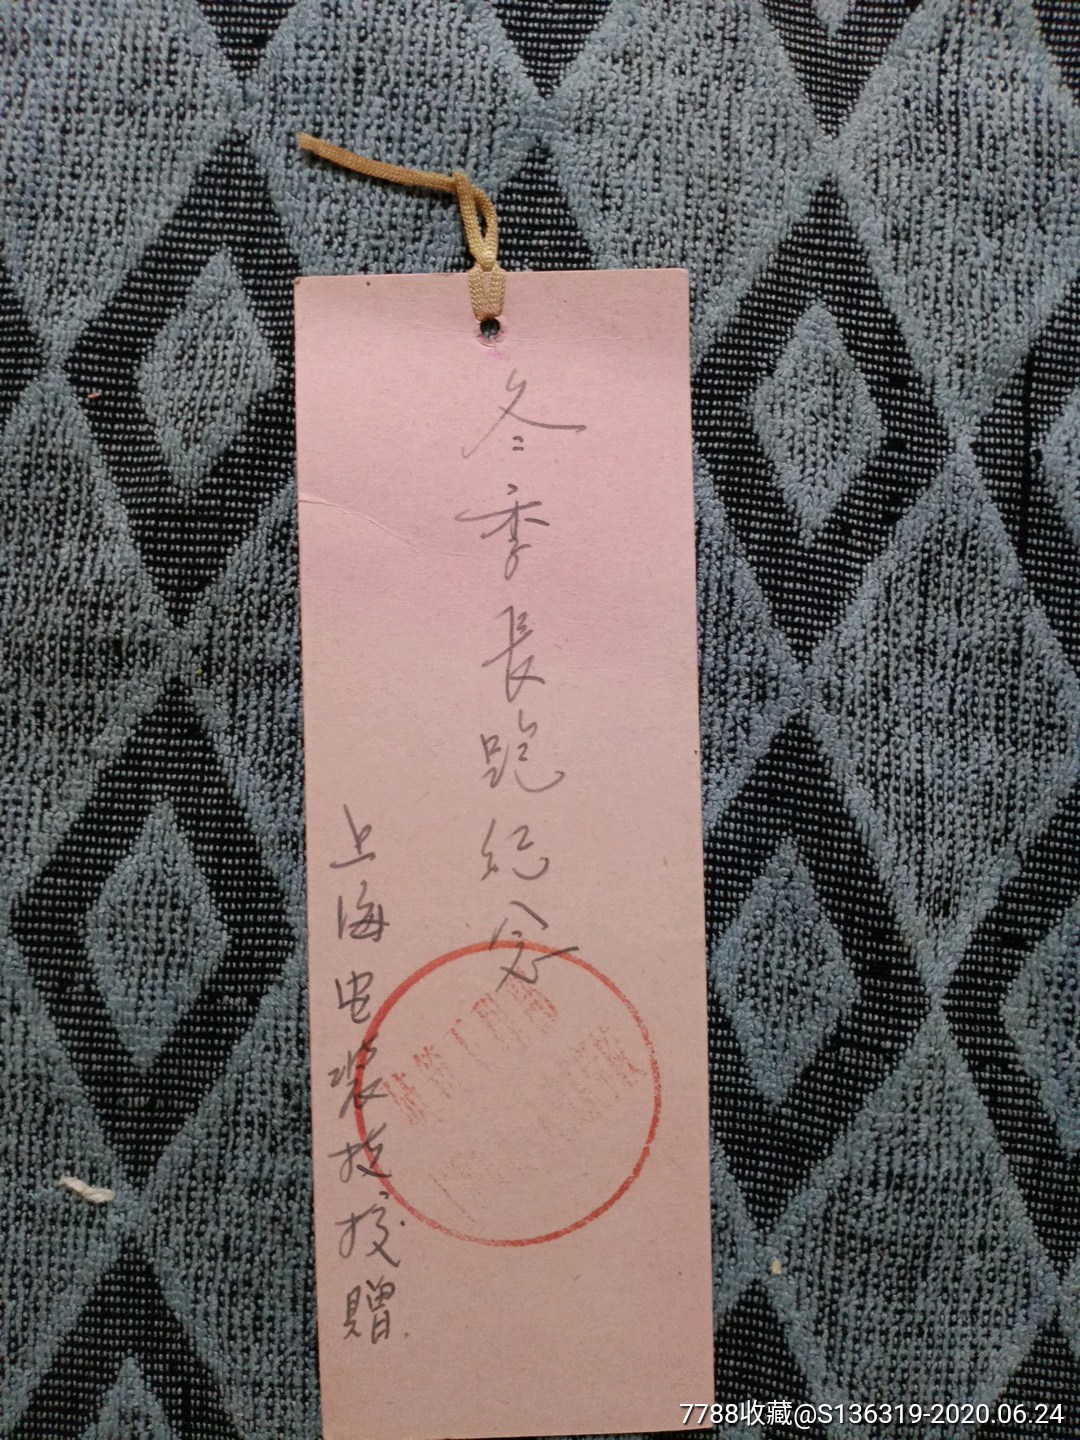 冬季長跑纪念
上海电装技校贈
7788收藏@S136319-2020.06.24